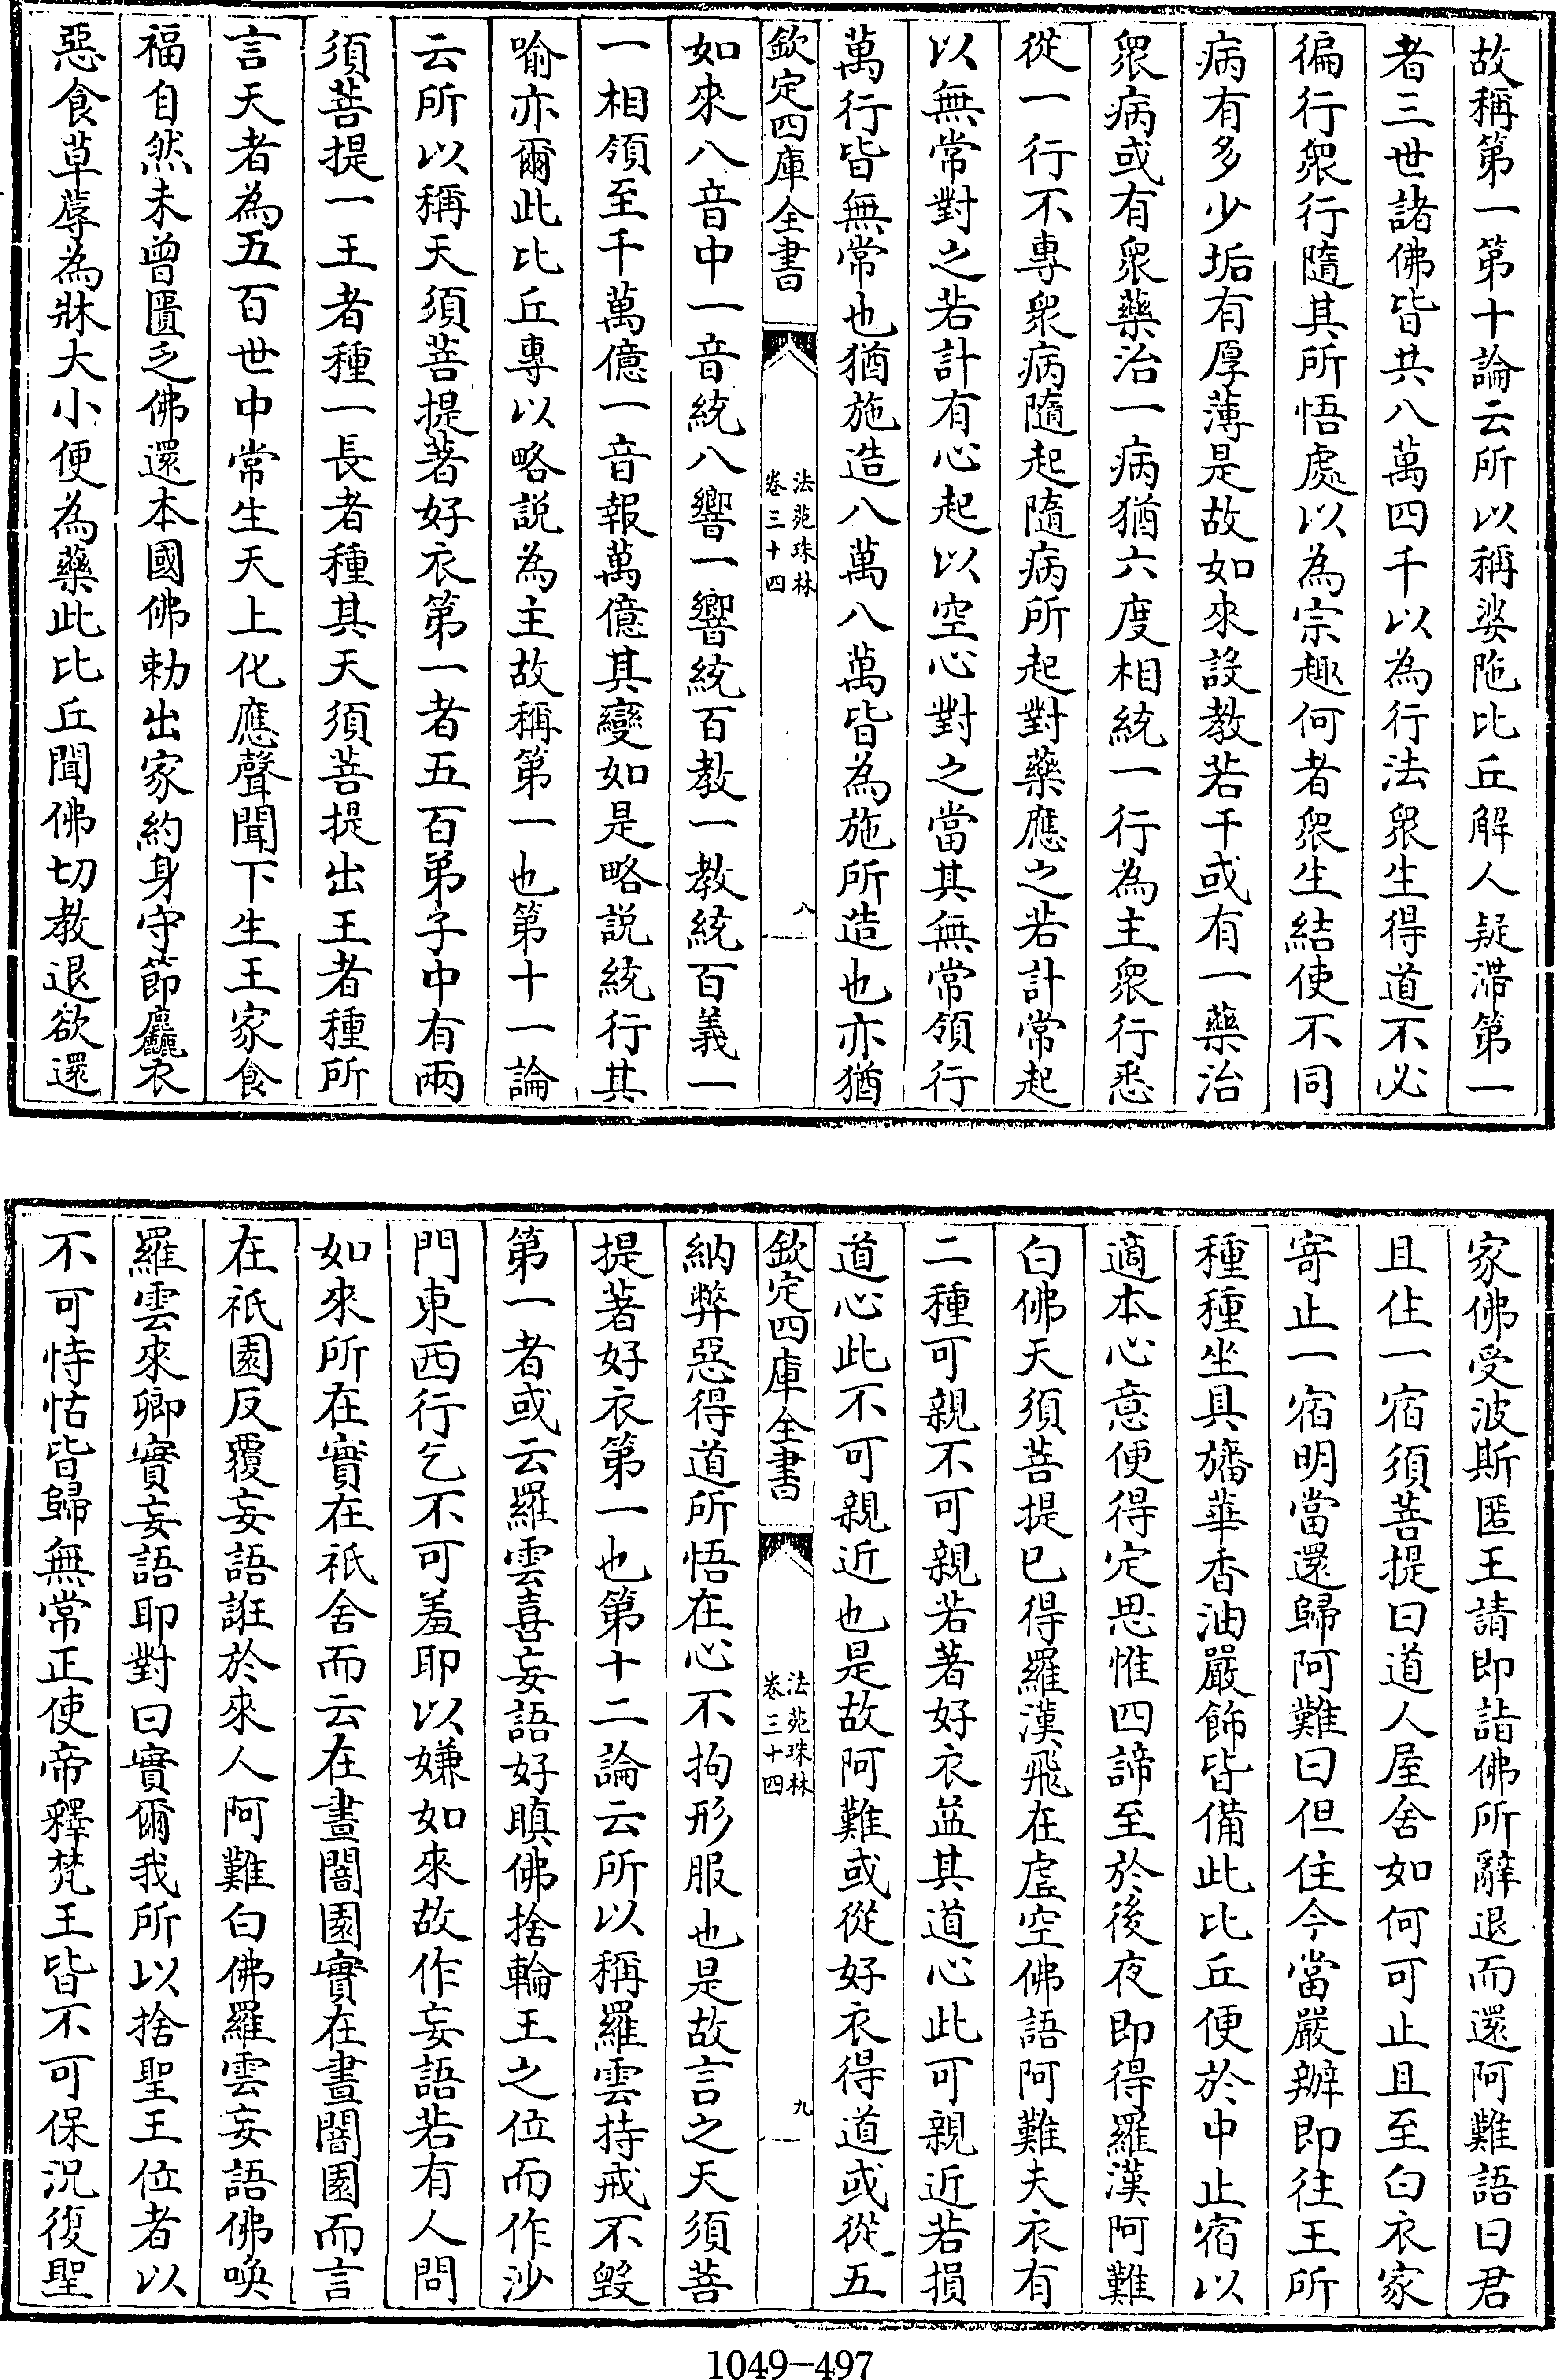 故稱第一第十論云所以稱婆陁比丘解人疑滯第一
者三世諸佛皆共八萬四千以為行法衆生得道不必
徧行衆行隨其所悟處以為宗趣何者衆生結使不同
病有多少垢有厚薄是故如來設教若干或有一藥治
衆病或有衆藥治一病猶六度相統一行為主衆行悉
從一行不專衆病隨起隨病所起對藥應之若計常起
以無常對之若計有心起以空心對之當其無常領行
萬行皆無常也猶施造八萬八萬皆為施所造也亦猶
欽定四庫全書
法苑珠林
卷三十四
八
如來八音中一音統八響一響統百教一教統百義一
一相領至千萬億一音報萬億其變如是略説統行其
喻亦爾此比丘專以略説為主故稱第一也第十一論
云所以稱天須菩提著好衣第一者五百弟子中有兩
須菩提一王者種一長者種其天須菩提出王者種所
言天者為五百世中常生天上化應聲聞下生王家食
福自然未曾匱乏佛還本國佛勅出家約身守節麤衣
惡食草蓐為牀大小便為藥此比丘聞佛切教退欲還
家佛受波斯匿王請即詣佛所辭退而還阿難語曰君
且住一宿須菩提曰道人屋舍如何可止且至白衣家
寄止一宿明當還歸阿難曰但住今當嚴辦即往王所
種種坐具旛華香油嚴飾皆備此比丘便於中止宿以
適本心意便得定思惟四諦至於後夜即得羅漢阿難
白佛天須菩提已得羅漢飛在虛空佛語阿難夫衣有
二種可親不可親若著好衣益其道心此可親近若損
道心此不可親近也是故阿難或從好衣得道或從五
欽定四庫全書
法苑珠林
卷三十四
九
納弊惡得道所悟在心不拘形服也是故言之天須菩
提著好衣第一也第十二論云所以稱羅雲持戒不毀
第一者或云羅雲喜妄語好瞋佛捨輪王之位而作沙
門東西行乞不可羞耶以嫌如來故作妄語若有人問
如來所在實在祇舍而云在晝闇園實在晝闇園而言
在祇園反覆妄語誑於來人阿難白佛羅雲妄語佛喚
羅雲來卿實妄語耶對曰實爾我所以捨聖王位者以
不可恃怙皆歸無常正使帝釋梵王皆不可保況復聖
1049-497